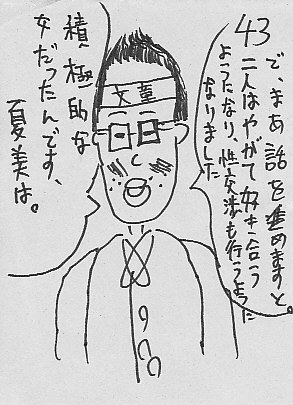 43
で、まあ話を進めますと。
二人はやがて好き合う
ようになり、性交渉も行うように
なりました
文童
積極的な
女だったんです、
夏美は。